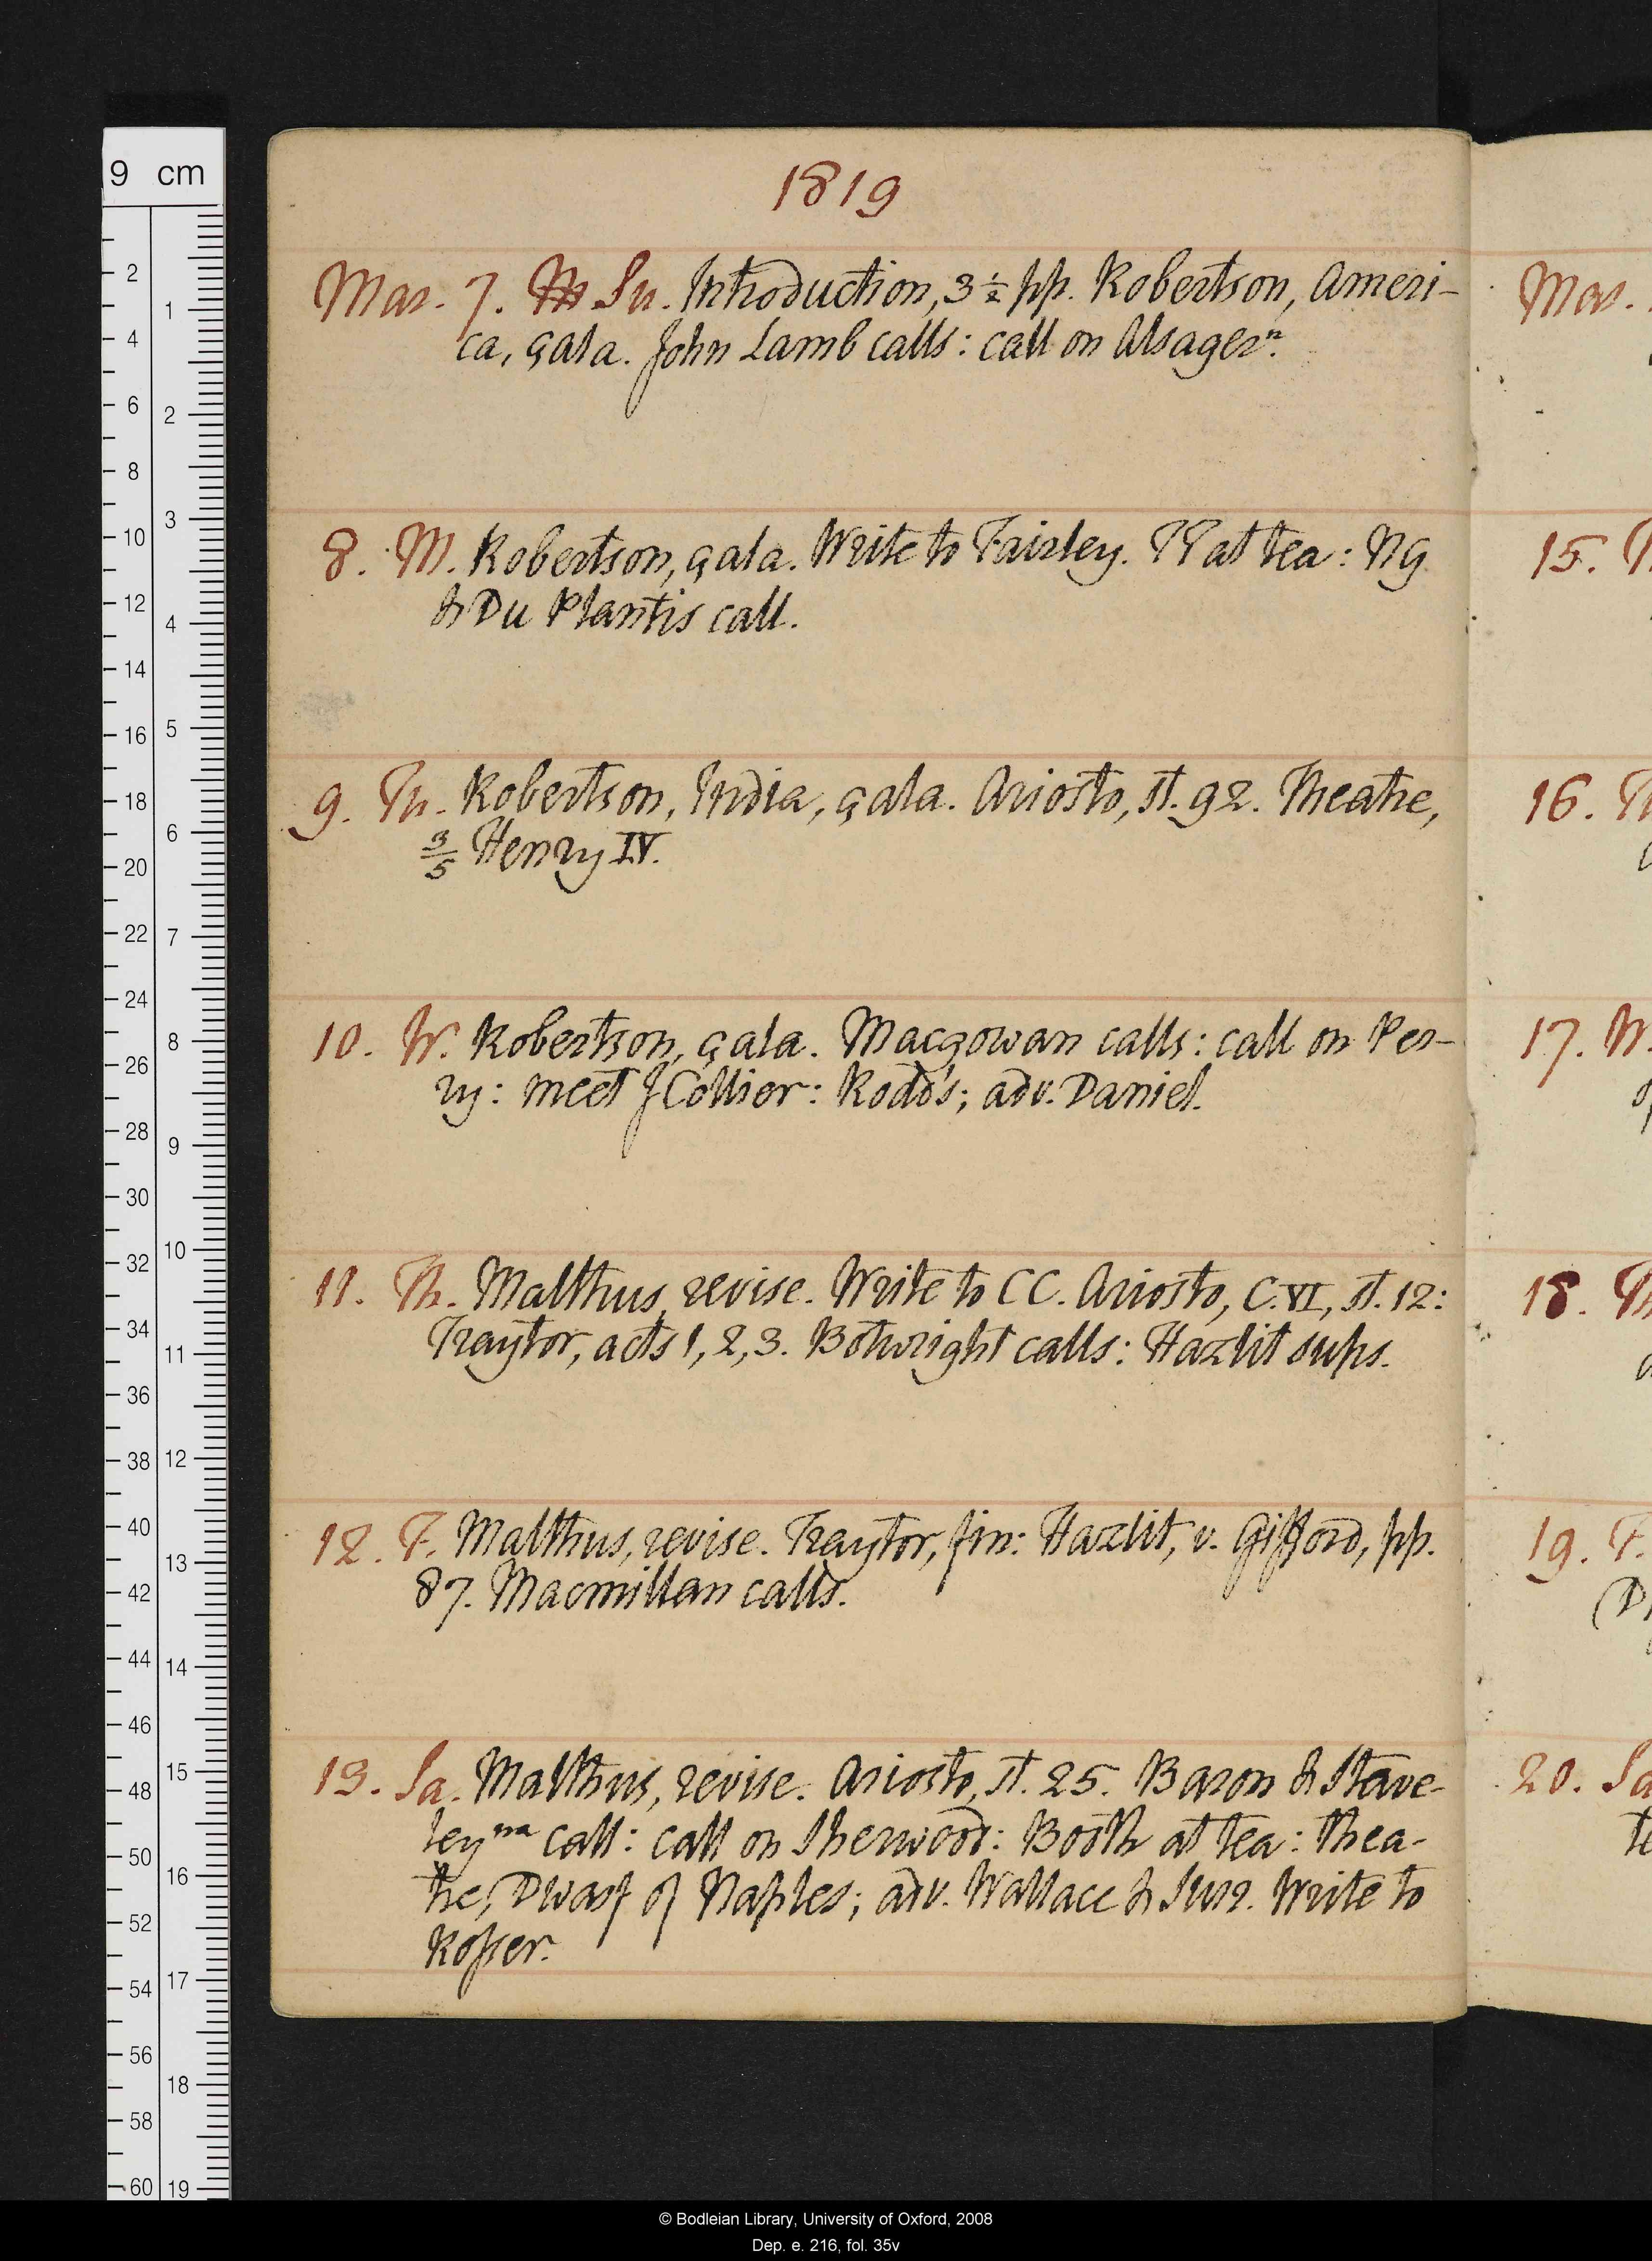 1819
Mar. 7. M Su. Introduction, 3 ½ pp. Robertson, Ameri-
ca, çala. John Lamb calls: call on Alsager n.
8. M. Robertson, çala. Write to Fairley. TT at tea: NG
& Du Plantis call.
9. Tu. Robertson, India, çala. Ariosto, st. 92. Theatre,
3/5 Henry IV.
10. W. Robertson, çala. Macgowan calls: call on Per-
ry: meet J Collier: Rodd's; adv. Daniel.
11. Th. Malthus, revise. Write to CC. Ariosto, C. VI, st. 12:
Traytor, acts 1, 2, 3. Botwright calls: Hazlit sups.
12. F. Malthus, revise. Traytor, fin: Hazlit, v. Gifford, pp.
87. Macmillan calls.
13. Sa. Malthus, revise. Ariosto, st. 25. Baron & Stave-
ley na call: call on Sherwood: Booth at tea: thea-
tre, Dwarf of Naples; adv. Wallace & Surr. Write to
Rosser.
Mar.
15.
16. T
17. W.
18. Th
19. F.
(D
20. Sa
te
9 cm
2 4 6 8 10 12 14 16 18 20 22 24 26 28 30 32 34 36 38 40 42 44 46 48 50 52 54 56 58 60
1 2 3 4 5 6 7 8 9 10 11 12 13 14 15 16 17 18 19
© Bodleian Library, University of Oxford, 2008
Dep. e. 216, fol. 35v